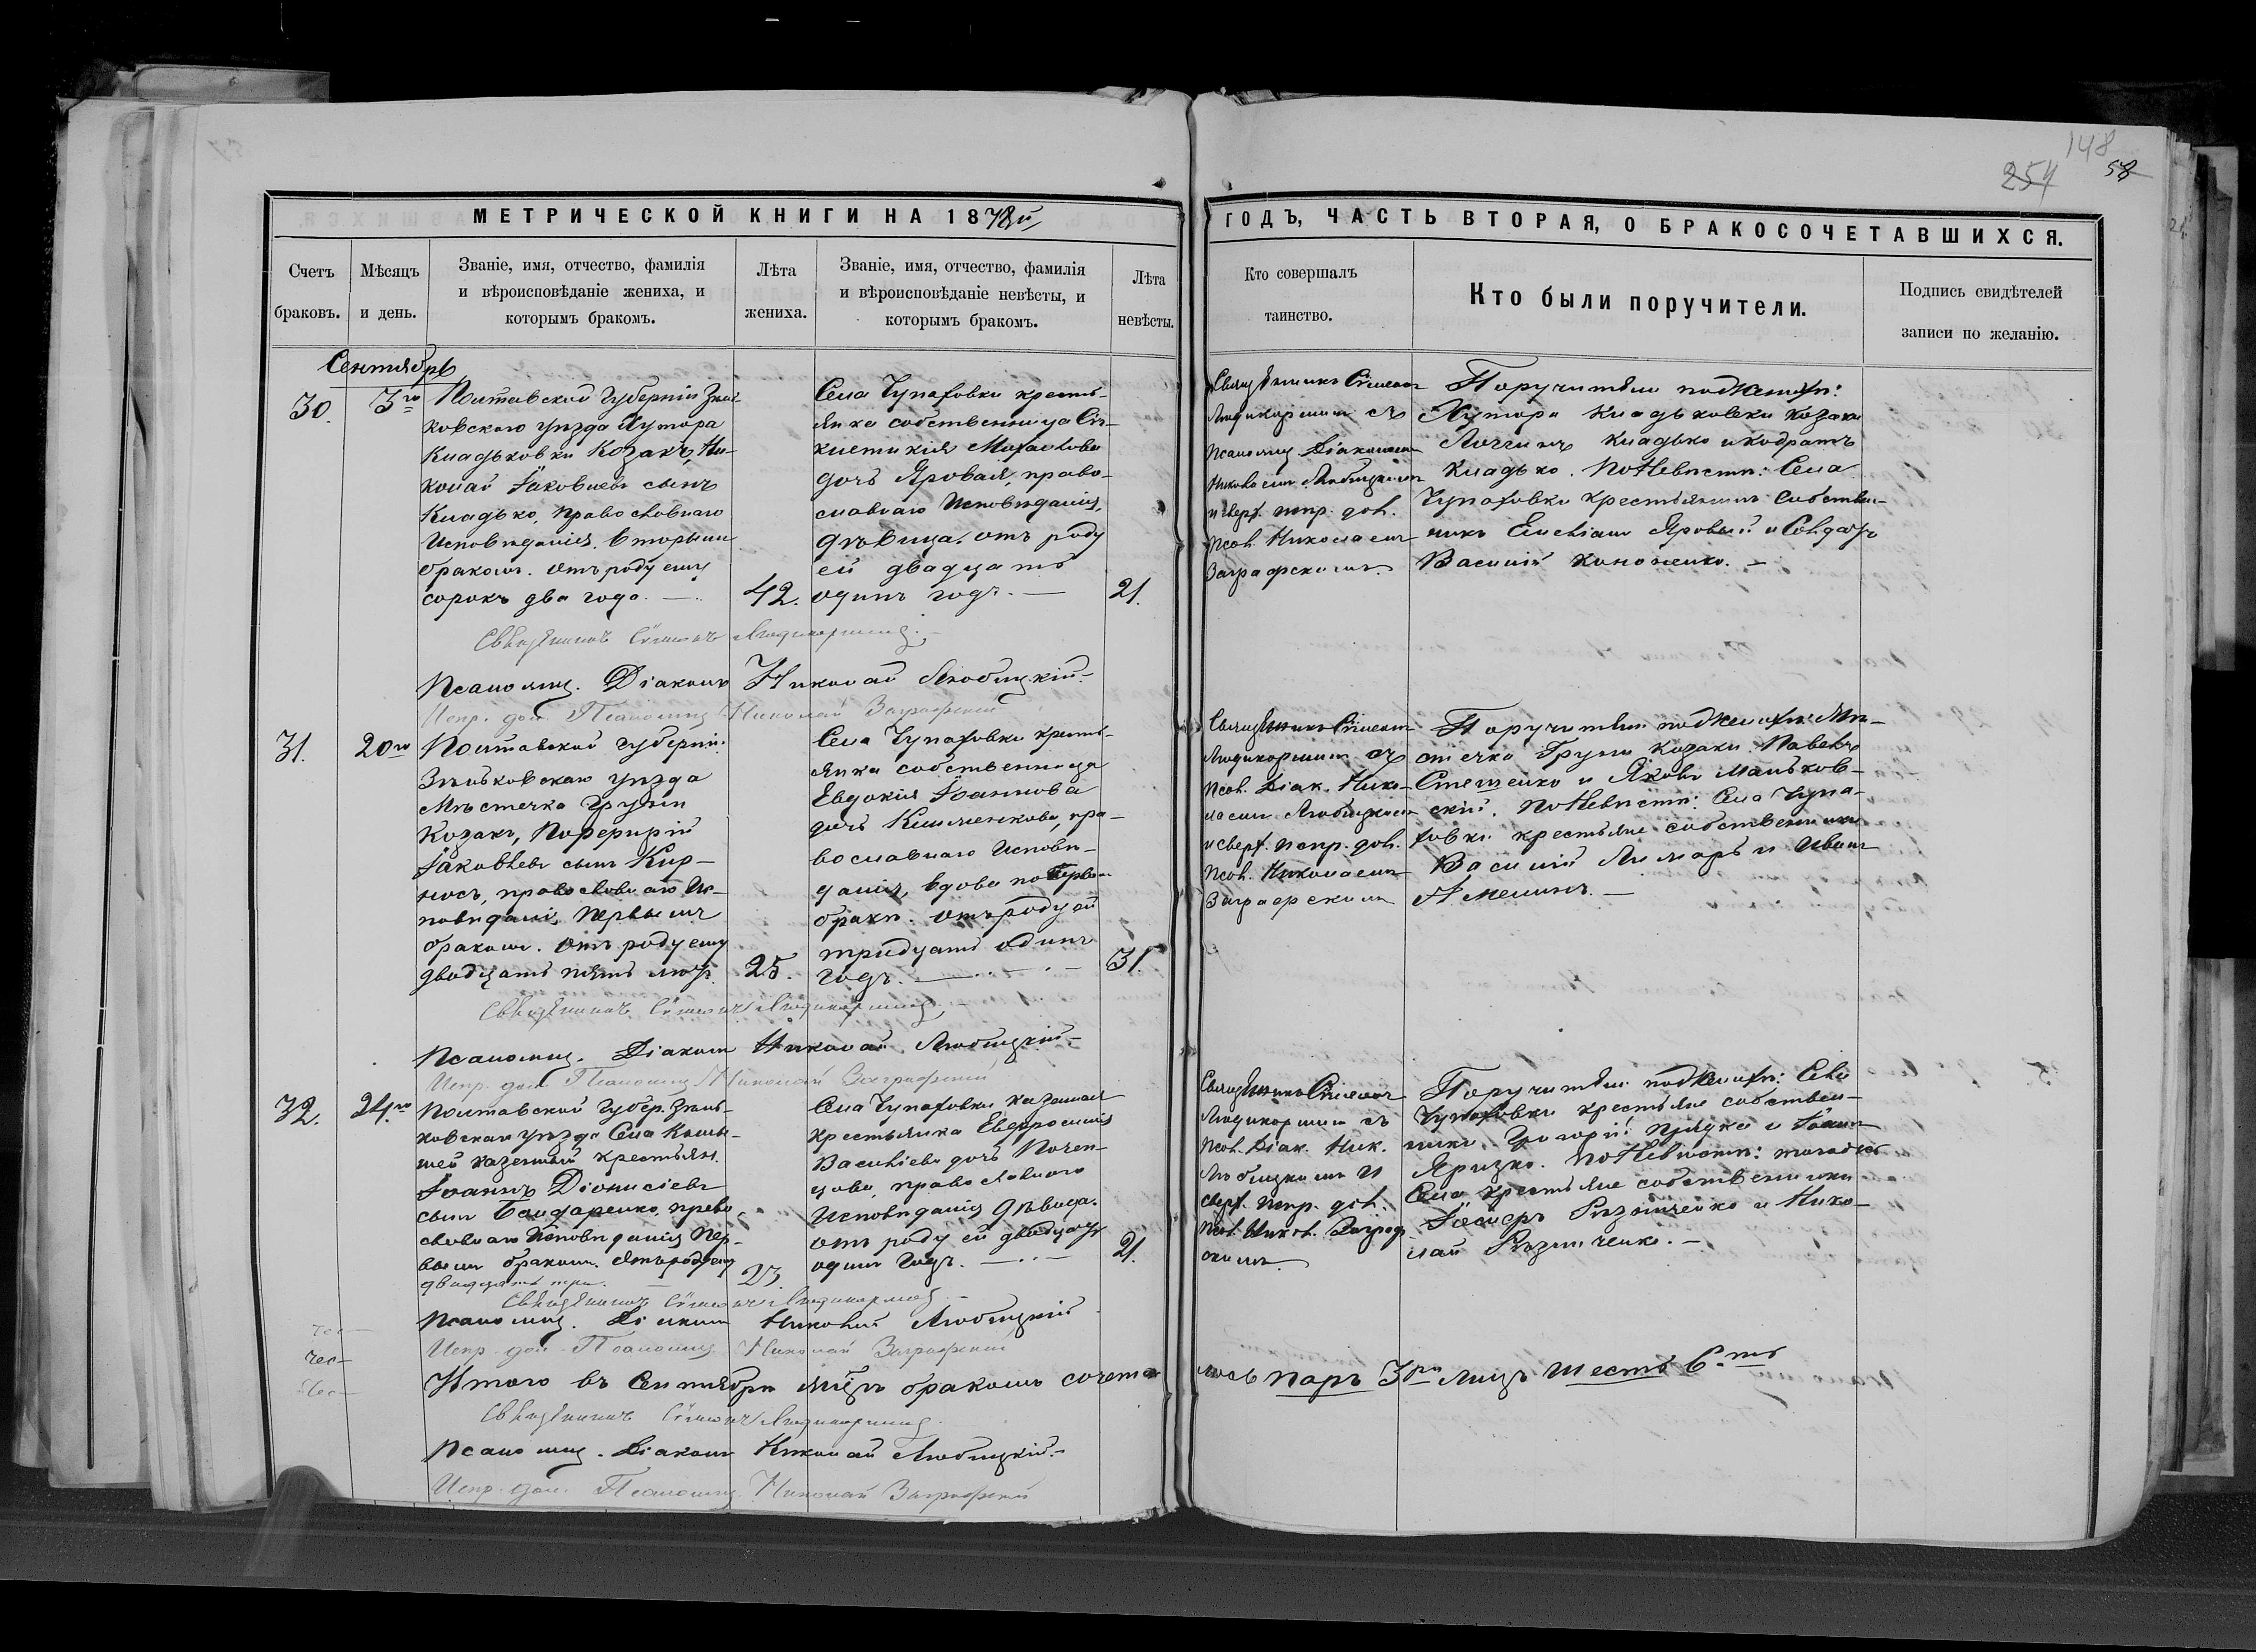 148
254 58
МЕТРИЧЕСКОЙ КНИГИ НА 1878й
ГОДЪ, ЧАСТЬ ВТОРАЯ, О БРАКОСОЧЕТАВШИХСЯ.
Счетъ браковъ.
Мѣсяцъ и день.
Званіе, имя, отчество, фамилія
и вѣроисповѣданіе жениха, и
которымъ бракомъ.
Лѣта
жениха.
Званіе, имя, отчество, фамилія
и вѣроисповѣданіе невѣсты, и
которымъ бракомъ.
Лѣта
невѣсты.
Кто совершалъ
таинство.
Кто были поручители.
Подпись свидѣтелей
записи по желанію.
Сентябрь
30. 3го
Полтавской Губерніи Зѣнь-
ковскаго уѣзда Хутора
Кладьковки Козакъ, Ни-
колай Іаковлевъ сынъ
Кладько, православнаго
Исповѣданія. вторымъ
бракомъ. отъ роду ему
сорокъ два года. —
42.
Села Чупаховки кресть-
янка собственница
Михайлова
дочь Яровая, право-
славнаго Исповѣданія,
дѣвица. отъ роду
ей двадцать
одинъ годъ. —
21.
Священникъ Сѵмеонъ
съ
Псаломщ. Діакономъ
Николаемъ Любицкимъ
и сверх. испр. дол.
Псал. Николаемъ
Заграфскимъ.
Поручители по Женихѣ:
Хутора Кладьковки козаки
Логгинъ Кладько и Кодратъ
Кладько. По Невѣстѣ: Села
Чупаховки крестьянинъ собствен-
никъ Яровый и Солдатъ
Василій Кононенко. —
Священникъ Сѵмеонъ
Псаломщ. Діаконъ Николай Любицкій. —
Испр. дол. Псаломщ. Николай Заграфскій
31. 20го
Полтавской губерніи
Зѣньковскаго уѣзда
Мѣстечка Груни
Козакъ, Порфирій
Іаковлевъ сынъ Кир-
носъ, православнаго Ис-
повѣданія, Первымъ
бракомъ. отъ роду ему
двадцать пять лѣтъ.
25.
Села Чупаховки кресть-
янка собственница
Евдокія Іоаннова
дочь Клименкова, пра-
вославнаго Исповѣ-
данія, вдова по первом
бракѣ. отъ роду ей
тридцать одинъ
годъ. —
31.
Священникъ Сѵмеонъ
съ
Псал. Діак. Нико-
лаемъ Любицкимъ
и сверх. испр. дол.
Псал. Николаемъ
Заграфскимъ
Поручители по Женихѣ: Мѣ-
стечка Груни Козаки Павелъ
Стешенко и Яковъ Маньков-
скій. По Невѣстѣ: Села Чупа-
ховки крестьяне собственники
Василій Лимарь и Иванъ
—
Священникъ Сѵмеонъ
Псаломщ. Діаконъ Николай Любицкій —
Испр. дол. Псаломщ. Николай Заграфскій
32. 24го
Полтавской Губер. Зѣнь-
ковскаго уѣзда Села
казенный крестьян.
Іоаннъ Діонисіевъ
сынъ Бондаренко, право-
славнаго Исповѣданія Пер-
вымъ бракомъ. Отъ роду ему
двадцать три. —
23.
Села Чупаховки казенная
крестьянка Евфросинія
Васильева дочь
православнаго
Исповѣданія дѣвица.
отъ роду ей двадцать
одинъ годъ. —
21.
Священникъ Сѵмеонъ
съ
Псал. Діак. Ник.
Любицкимъ и
сверх. испр. дол.
Псал. Никол. Заграф-
скимъ
Поручители по Женихѣ: Села
Чупаховки крестьяне собствен-
ники Григорій Прядка и Іоаннъ
Яризко. По Невѣстѣ: того же
Села крестьяне собственники
и Нико-
лай —
Священникъ Сѵмеонъ
Псаломщ. Діаконъ Николай Любицкій
Испр. дол. Псаломщ. Николай Заграфскій
Итого въ Сентябрѣ мѣсяцѣ бракомъ сочета-
лось паръ 3ри лицъ шесть 6ть
Священникъ Сѵмеонъ
Псаломщ. Діаконъ Николай Любицкій. —
Испр. дол. Псаломщ. Николай Заграфскій